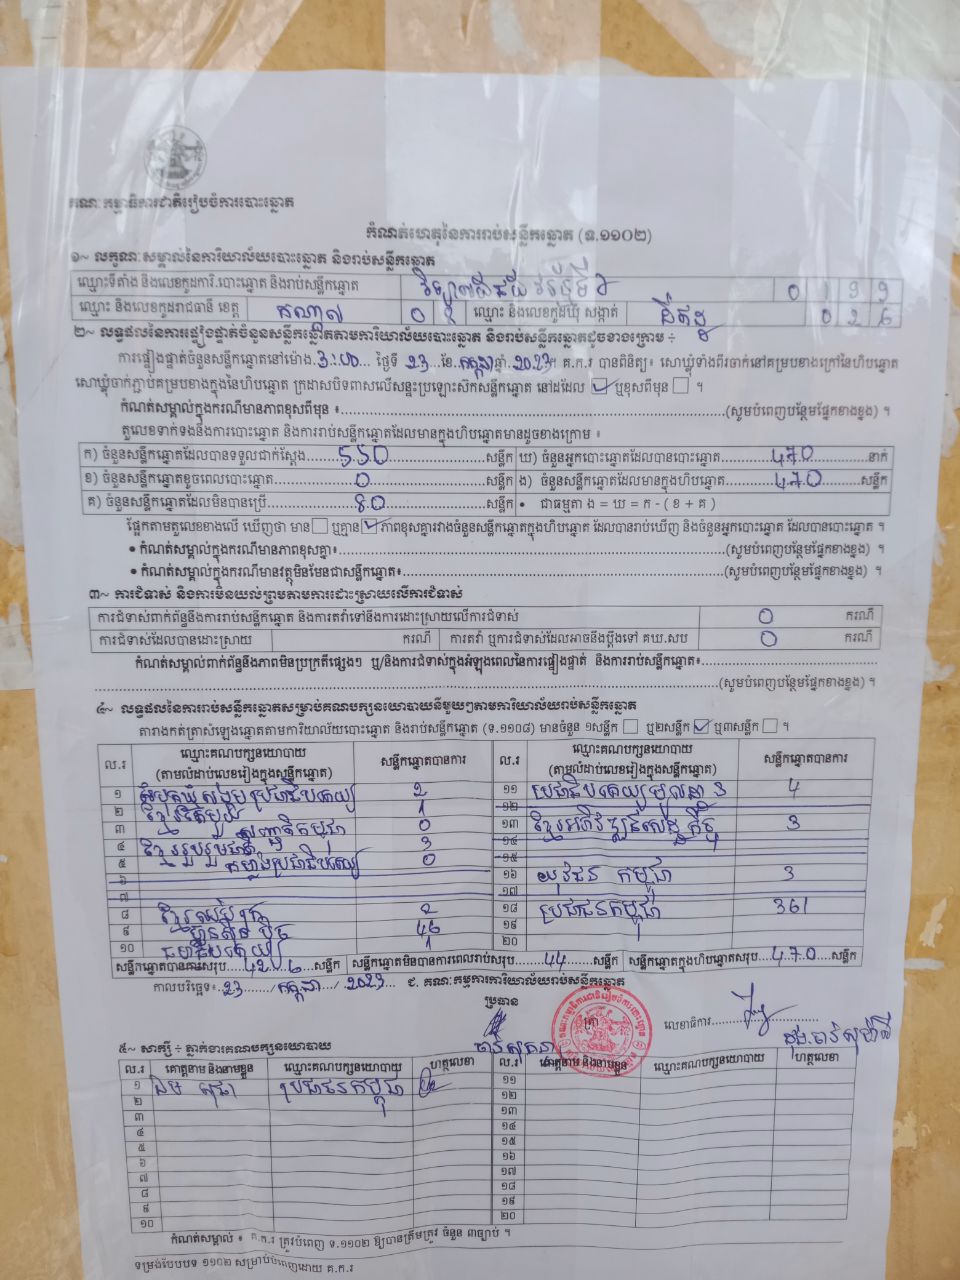 គណៈកម្មាធិការជាតិរៀបចំការបោះឆ្នោត
កំណត់ហេតុនៃការរាប់សន្លឹកឆ្នោត (ទ.១១០២)
១~ លក្ខណៈសម្គាល់នៃការិយាល័យបោះឆ្នោត និងរាប់សន្លឹកឆ្នោត
ឈ្មោះទីតាំង និងលេខកូដការិ.បោះឆ្នោត និងរាប់សន្លឹកឆ្នោត 0199
ឈ្មោះ និងលេខកូដរាជធានី ខេត្ត កណ្តាល 08 ឈ្មោះ និងលេខកូដឃុំ សង្កាត់ 026
២~ លទ្ធផលនៃការផ្ទៀងផ្ទាត់ចំនួនសន្លឹកឆ្នោតតាមការិយាល័យបោះឆ្នោត និងរាប់សន្លឹកឆ្នោតដូចខាងក្រោម ÷
ការផ្ទៀងផ្ទាត់ចំនួនសន្លឹកឆ្នោតនៅម៉ោង 3:00 ថ្ងៃទី 23 ខែ កក្កដា ឆ្នាំ 2023 ។ គ.ក.រ បានពិនិត្យ៖ សោឃ្លុំទាំងពីរចាក់នៅគម្របខាងក្រៅនៃហិបឆ្នោត
សោឃ្លុំចាក់ភ្ជាប់គម្របខាងក្នុងនៃហិបឆ្នោត ក្រដាសបិទពាសលើសន្ទះប្រឡោះស៊កសន្លឹកឆ្នោត នៅដដែល ☑ ឬខុសពីមុន ☐ ។
កំណត់សម្គាល់ក្នុងករណីមានភាពខុសពីមុន ៖ (សូមបំពេញបន្ថែមផ្នែកខាងខ្នង) ។
តួលេខទាក់ទងនឹងការបោះឆ្នោត និងការរាប់សន្លឹកឆ្នោតដែលមានក្នុងហិបឆ្នោតមានដូចខាងក្រោម ៖
ក) ចំនួនសន្លឹកឆ្នោតដែលបានទទួលជាក់ស្តែង 550 សន្លឹក ឃ) ចំនួនអ្នកបោះឆ្នោតដែលបានបោះឆ្នោត 470 នាក់
ខ) ចំនួនសន្លឹកឆ្នោតខូចពេលបោះឆ្នោត 0 សន្លឹក ង) ចំនួនសន្លឹកឆ្នោតដែលមានក្នុងហិបឆ្នោត 470 សន្លឹក
គ) ចំនួនសន្លឹកឆ្នោតដែលមិនបានប្រើ 80 សន្លឹក • ជាធម្មតា ង = ឃ = ក - ( ខ + គ )
ផ្អែកតាមតួលេខខាងលើ ឃើញថា មាន ☐ ឬគ្មាន ☑ ភាពខុសគ្នារវាងចំនួនសន្លឹកឆ្នោតក្នុងហិបឆ្នោត ដែលបានរាប់ឃើញ និងចំនួនអ្នកបោះឆ្នោត ដែលបានបោះឆ្នោត ។
• កំណត់សម្គាល់ក្នុងករណីមានភាពខុសគ្នា៖ (សូមបំពេញបន្ថែមផ្នែកខាងខ្នង) ។
• កំណត់សម្គាល់ក្នុងករណីមានវត្ថុមិនមែនជាសន្លឹកឆ្នោត៖ (សូមបំពេញបន្ថែមផ្នែកខាងខ្នង) ។
៣~ ការជំទាស់ និងការមិនយល់ព្រមតាមការដោះស្រាយលើការជំទាស់
ការជំទាស់ពាក់ព័ន្ធនឹងការរាប់សន្លឹកឆ្នោត និងការតវ៉ាទៅនឹងការដោះស្រាយលើការជំទាស់ 0 ករណី
ការជំទាស់ដែលបានដោះស្រាយ ករណី ការតវ៉ា ឬការជំទាស់ដែលអាចនឹងប្តឹងទៅ គឃ.សប 0 ករណី
កំណត់សម្គាល់ពាក់ព័ន្ធនឹងភាពមិនប្រក្រតីផ្សេងៗ ឬ/និងការជំទាស់ក្នុងអំឡុងពេលនៃការផ្ទៀងផ្ទាត់ និងការរាប់សន្លឹកឆ្នោត៖
(សូមបំពេញបន្ថែមផ្នែកខាងខ្នង) ។
៤~ លទ្ធផលនៃការរាប់សន្លឹកឆ្នោតសម្រាប់គណបក្សនយោបាយនីមួយៗតាមការិយាល័យរាប់សន្លឹកឆ្នោត
តារាងកត់ត្រាសំឡេងឆ្នោតតាមការិយាល័យបោះឆ្នោត និងរាប់សន្លឹកឆ្នោត (ទ.១១០៨) មានចំនួន ១សន្លឹក ☐ ឬ២សន្លឹក ☑ ឬ៣សន្លឹក ☐ ។
ល.រ ឈ្មោះគណបក្សនយោបាយ (តាមលំដាប់លេខរៀងក្នុងសន្លឹកឆ្នោត) សន្លឹកឆ្នោតបានការ ល.រ ឈ្មោះគណបក្សនយោបាយ (តាមលំដាប់លេខរៀងក្នុងសន្លឹកឆ្នោត) សន្លឹកឆ្នោតបានការ
១ សំបុកឃ្មុំសង្គមប្រជាធិបតេយ្យ 2 ១១ ប្រជាធិបតេយ្យមូលដ្ឋាន 4
២ ខ្មែរតែមួយ 1 ១២
៣ សញ្ជាតិកម្ពុជា 0 ១៣ ខ្មែរអភិវឌ្ឍន៍សេដ្ឋកិច្ច 3
៤ ខ្មែររួបរួមជាតិ 3 ១៤
៥ កម្លាំងប្រជាធិបតេយ្យ 0 ១៥
៦ ១៦ យុវជនកម្ពុជា 3
៧ ១៧
៨ 2 ១៨ ប្រជាជនកម្ពុជា 361
៩ ហ៊្វុនស៊ិនប៉ិច 46 ១៩
១០ ធម្មាធិបតេយ្យ 1 ២០
សន្លឹកឆ្នោតបានការសរុប 426 សន្លឹក សន្លឹកឆ្នោតមិនបានការពេលរាប់សរុប 44 សន្លឹក សន្លឹកឆ្នោតក្នុងហិបឆ្នោតសរុប 470 សន្លឹក
កាលបរិច្ឆេទ៖ 23 / កក្កដា / 2023 ជ. គណៈកម្មការការិយាល័យរាប់សន្លឹកឆ្នោត
ប្រធាន
ត្រា លេខាធិការ
៥~ សាក្សី ÷ ភ្នាក់ងារគណបក្សនយោបាយ
ល.រ គោត្តនាម និងនាមខ្លួន ឈ្មោះគណបក្សនយោបាយ ហត្ថលេខា ល.រ គោត្តនាម និងនាមខ្លួន ឈ្មោះគណបក្សនយោបាយ ហត្ថលេខា
១ ប្រជាជនកម្ពុជា ១១
២ ១២
៣ ១៣
៤ ១៤
៥ ១៥
៦ ១៦
៧ ១៧
៨ ១៨
៩ ១៩
១០ ២០
កំណត់សម្គាល់ ៖ គ.ក.រ ត្រូវបំពេញ ទ.១១០២ ឱ្យបានត្រឹមត្រូវ ចំនួន ៣ច្បាប់ ។
ទម្រង់បែបបទ ១១០២ សម្រាប់បំពេញដោយ គ.ក.រ